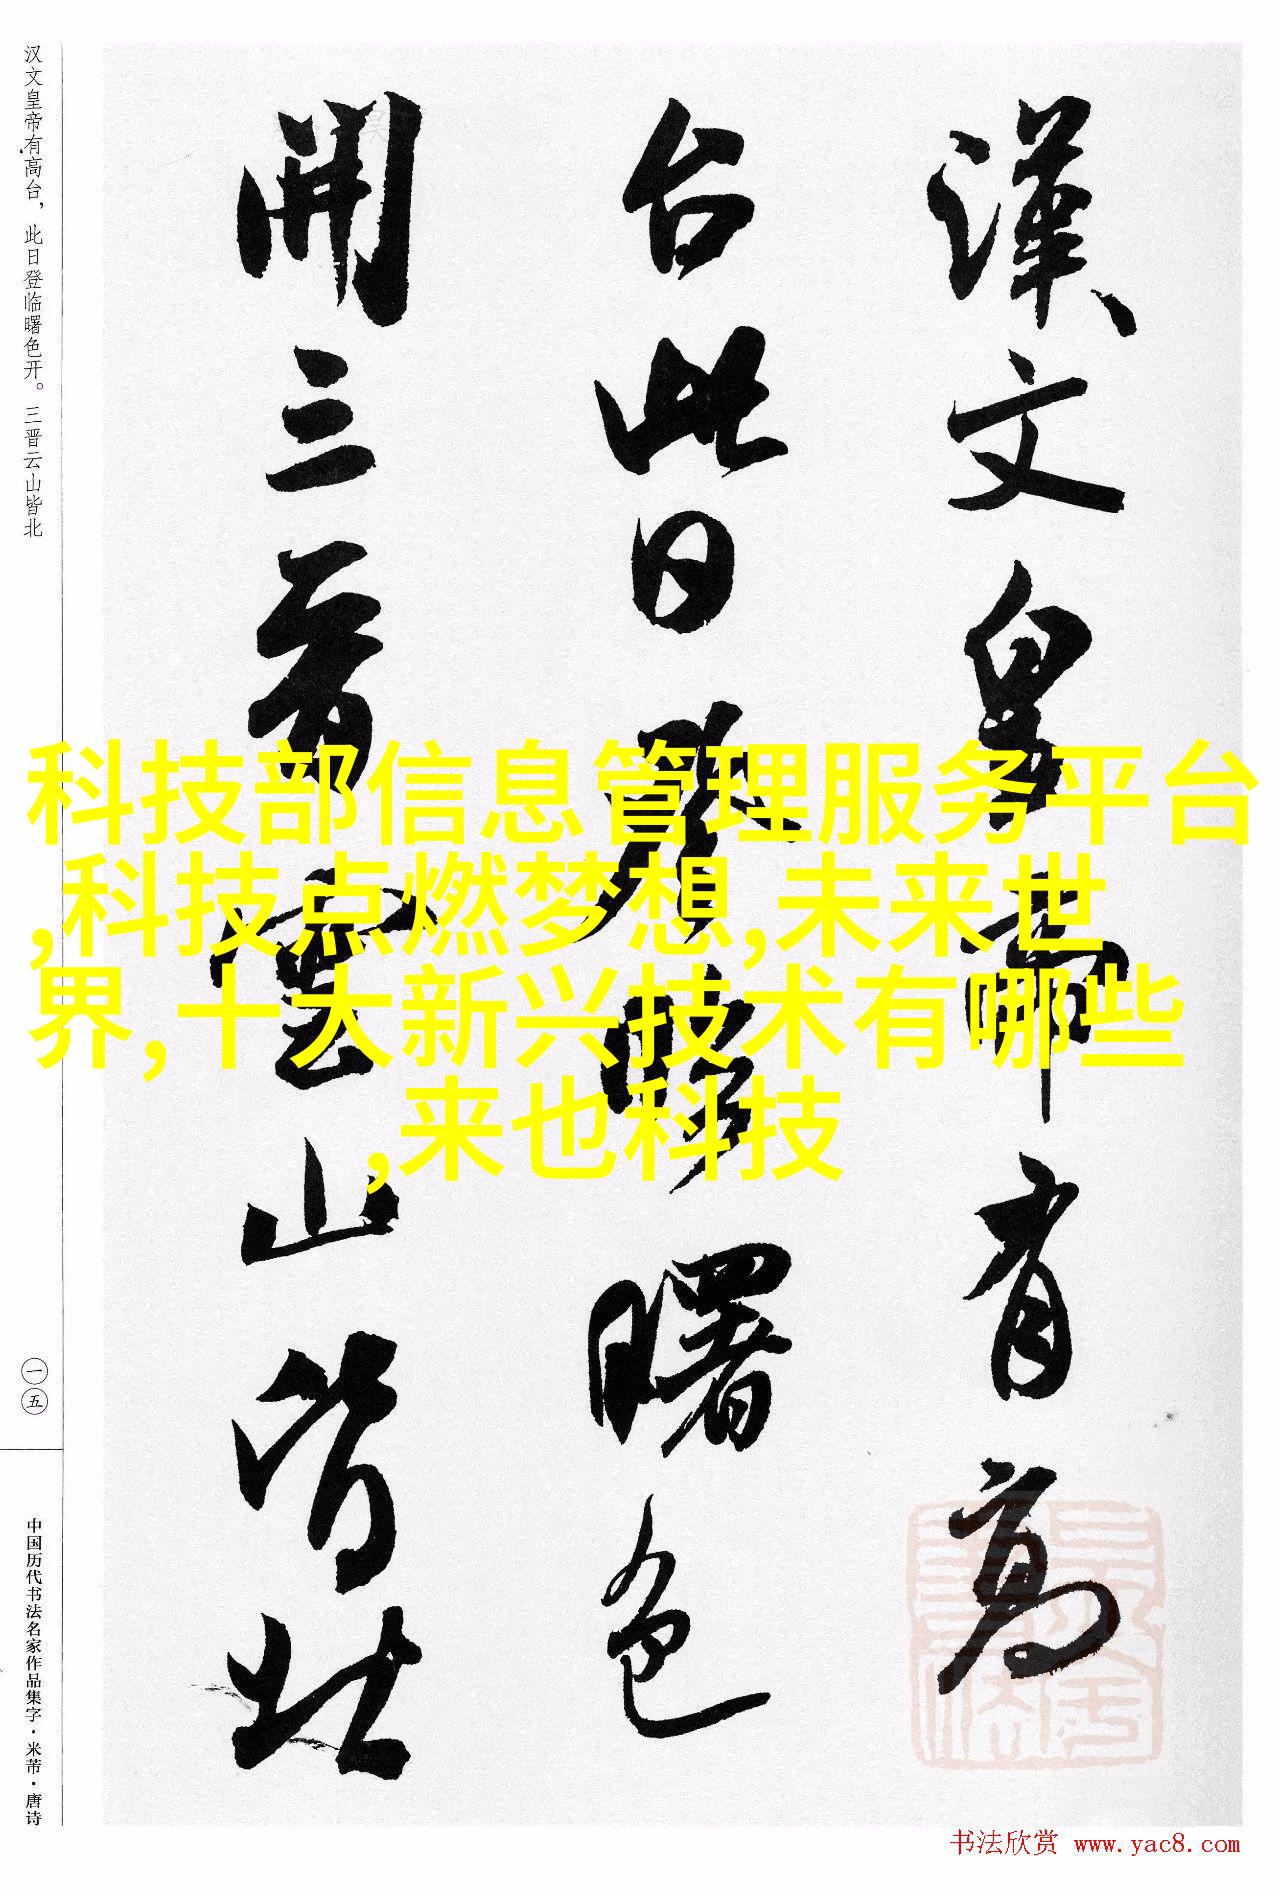 漢文皇帝有高
台此日登臨曙色
開三晉雲山皆北
汉文皇帝有高台，此日登临曙色开。三晋云山皆北
一五
中国历代书法名家作品集字·米芾·唐诗
科技部信息管理服务平台
,科技点燃梦想,未来世
界,十大新兴技术有哪些
,来也科技
书法欣赏 www.yac8.com